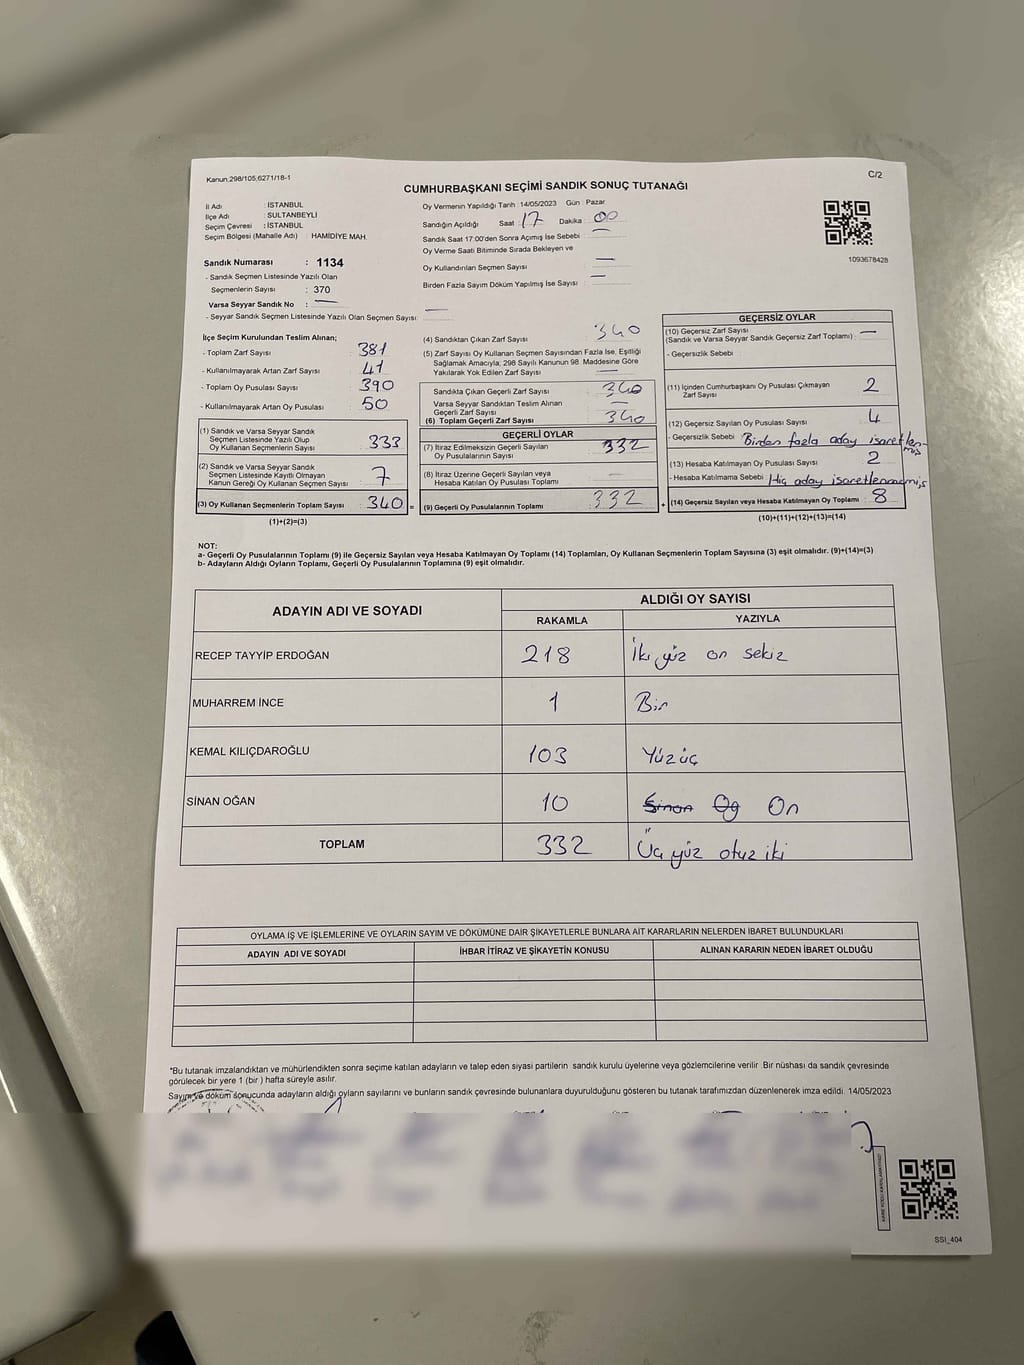 Kanun;298/105,6271/18-1
C/2
CUMHURBAŞKANI SEÇİMİ SANDIK SONUÇ TUTANAĞI
İl Adı : İSTANBUL
İlçe Adı : SULTANBEYLİ
Seçim Çevresi : İSTANBUL
Seçim Bölgesi (Mahalle Adı) : HAMİDİYE MAH.
Sandık Numarası : 1134
- Sandık Seçmen Listesinde Yazılı Olan
Seçmenlerin Sayısı : 370
Varsa Seyyar Sandık No : —
- Seyyar Sandık Seçmen Listesinde Yazılı Olan Seçmen Sayısı: —
Oy Vermenin Yapıldığı Tarih :14/05/2023 Gün : Pazar
Sandığın Açıldığı Saat : 17 Dakika : 00
Sandık Saat 17:00'den Sonra Açımış İse Sebebi : —
Oy Verme Saati Bitiminde Sırada Bekleyen ve
Oy Kullandırılan Seçmen Sayısı : —
Birden Fazla Sayım Döküm Yapılmış İse Sayısı : —
1093678428
İlçe Seçim Kurulundan Teslim Alınan;
- Toplam Zarf Sayısı : 381
- Kullanılmayarak Artan Zarf Sayısı : 41
- Toplam Oy Pusulası Sayısı : 390
- Kullanılmayarak Artan Oy Pusulası : 50
(1) Sandık ve Varsa Seyyar Sandık
Seçmen Listesinde Yazılı Olup
Oy Kullanan Seçmenlerin Sayısı : 333
(2) Sandık ve Varsa Seyyar Sandık
Seçmen Listesinde Kayıtlı Olmayan
Kanun Gereği Oy Kullanan Seçmen Sayısı : 7
(3) Oy Kullanan Seçmenlerin Toplam Sayısı : 340 =
(1)+(2)=(3)
(4) Sandıktan Çıkan Zarf Sayısı : 340
(5) Zarf Sayısı Oy Kullanan Seçmen Sayısından Fazla İse, Eşitliği
Sağlamak Amacıyla; 298 Sayılı Kanunun 98. Maddesine Göre
Yakılarak Yok Edilen Zarf Sayısı : —
Sandıkta Çıkan Geçerli Zarf Sayısı : 340
Varsa Seyyar Sandıktan Teslim Alınan
Geçerli Zarf Sayısı : —
(6) Toplam Geçerli Zarf Sayısı : 340
GEÇERLİ OYLAR
(7) İtiraz Edilmeksizin Geçerli Sayılan
Oy Pusulalarının Sayısı : 332
(8) İtiraz Üzerine Geçerli Sayılan veya
Hesaba Katılan Oy Pusulası Toplamı : —
(9) Geçerli Oy Pusulalarının Toplamı : 332 +
GEÇERSİZ OYLAR
(10) Geçersiz Zarf Sayısı
(Sandık ve Varsa Seyyar Sandık Geçersiz Zarf Toplamı) : —
- Geçersizlik Sebebi :
(11) İçinden Cumhurbaşkanı Oy Pusulası Çıkmayan
Zarf Sayısı : 2
(12) Geçersiz Sayılan Oy Pusulası Sayısı : 4
- Geçersizlik Sebebi : Birden fazla aday işaretlenmiş
(13) Hesaba Katılmayan Oy Pusulası Sayısı : 2
- Hesaba Katılmama Sebebi : Hiç aday işaretlenmemiş
(14) Geçersiz Sayılan veya Hesaba Katılmayan Oy Toplamı : 8
(10)+(11)+(12)+(13)=(14)
NOT:
a- Geçerli Oy Pusulalarının Toplamı (9) ile Geçersiz Sayılan veya Hesaba Katılmayan Oy Toplamı (14) Toplamları, Oy Kullanan Seçmenlerin Toplam Sayısına (3) eşit olmalıdır. (9)+(14)=(3)
b- Adayların Aldığı Oyların Toplamı, Geçerli Oy Pusulalarının Toplamına (9) eşit olmalıdır.
ADAYIN ADI VE SOYADI ALDIĞI OY SAYISI
RAKAMLA YAZIYLA
RECEP TAYYİP ERDOĞAN 218 İki yüz on sekiz
MUHARREM İNCE 1 Bir
KEMAL KILIÇDAROĞLU 103 Yüzüç
SİNAN OĞAN 10 Sinan Oğ On
TOPLAM 332 Üç yüz otuz iki
OYLAMA İŞ VE İŞLEMLERİNE VE OYLARIN SAYIM VE DÖKÜMÜNE DAİR ŞİKAYETLERLE BUNLARA AİT KARARLARIN NELERDEN İBARET BULUNDUKLARI
ADAYIN ADI VE SOYADI İHBAR İTİRAZ VE ŞİKAYETİN KONUSU ALINAN KARARIN NEDEN İBARET OLDUĞU
*Bu tutanak imzalandıktan ve mühürlendikten sonra seçime katılan adayların ve talep eden siyasi partilerin sandık kurulu üyelerine veya gözlemcilerine verilir. Bir nüshası da sandık çevresinde
görülecek bir yere 1 (bir ) hafta süreyle asılır.
Sayım ve döküm sonucunda adayların aldığı oyların sayılarını ve bunların sandık çevresinde bulunanlara duyurulduğunu gösteren bu tutanak tarafımızdan düzenlenerek imza edildi. 14/05/2023
SSI_404